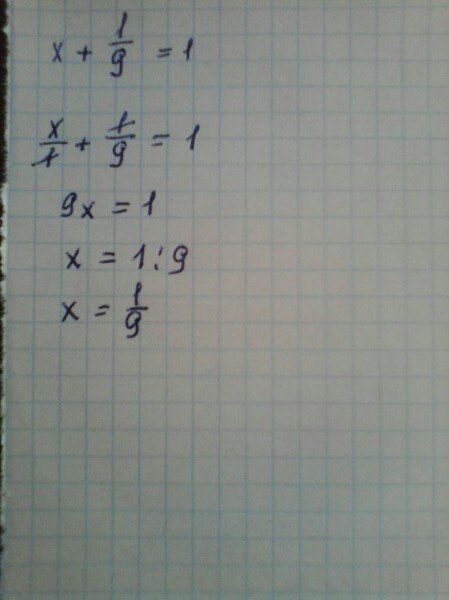 x + 1/9 = 1
x/1 + 1/9 = 1
9x = 1
x = 1 : 9
x = 1/9